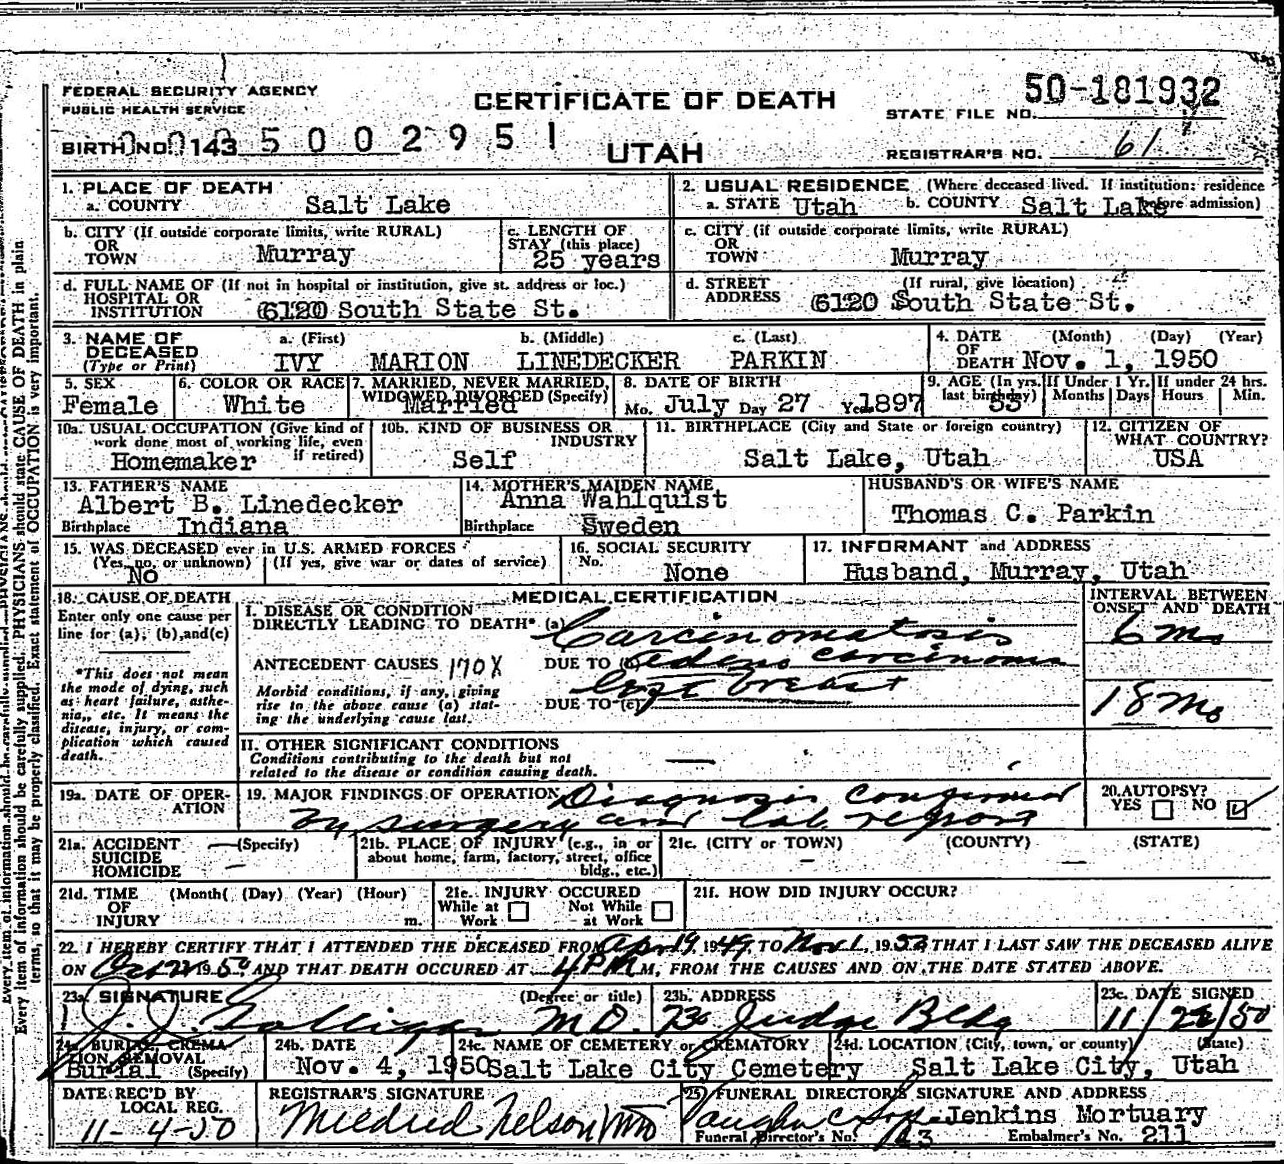 FEDERAL SECURITY AGENCY
PUBLIC HEALTH SERVICE
CERTIFICATE OF DEATH
STATE FILE NO. 50-181932
BIRTH NO. 143 5002951
UTAH
REGISTRAR'S NO. 61
1. PLACE OF DEATH
a. COUNTY Salt Lake
2. USUAL RESIDENCE (Where deceased lived. If institution: residence before admission)
a. STATE Utah b. COUNTY Salt Lake
b. CITY (If outside corporate limits, write RURAL)
OR
TOWN Murray
c. LENGTH OF
STAY (this place)
25 years
c. CITY (if outside corporate limits, write RURAL)
OR
TOWN Murray
d. FULL NAME OF (If not in hospital or institution, give st. address or loc.)
HOSPITAL OR
INSTITUTION 6120 South State St.
d. STREET (If rural, give location)
ADDRESS 6120 South State St.
3. NAME OF DECEASED (Type or Print)
a. (First) b. (Middle) c. (Last)
IVY MARION LINEDECKER PARKIN
4. DATE OF DEATH (Month) (Day) (Year)
Nov. 1, 1950
5. SEX
Female
6. COLOR OR RACE
White
7. MARRIED, NEVER MARRIED,
WIDOWED, DIVORCED (Specify)
Married
8. DATE OF BIRTH
Mo. July Day 27 Year 1897
9. AGE (In yrs. last birthday)
53
If Under 1 Yr. Months Days
If under 24 hrs. Hours Min.
10a. USUAL OCCUPATION (Give kind of
work done most of working life, even
if retired)
Homemaker
10b. KIND OF BUSINESS OR
INDUSTRY
Self
11. BIRTHPLACE (City and State or foreign country)
Salt Lake, Utah
12. CITIZEN OF
WHAT COUNTRY?
USA
13. FATHER'S NAME
Albert B. Linedecker
Birthplace Indiana
14. MOTHER'S MAIDEN NAME
Anna Wahlquist
Birthplace Sweden
HUSBAND'S OR WIFE'S NAME
Thomas C. Parkin
15. WAS DECEASED ever in U.S. ARMED FORCES
(Yes, no, or unknown) (If yes, give war or dates of service)
No
16. SOCIAL SECURITY
No. None
17. INFORMANT and ADDRESS
Husband, Murray, Utah
18. CAUSE OF DEATH
Enter only one cause per
line for (a), (b), and (c)
*This does not mean
the mode of dying, such
as heart failure, asthe-
nia, etc. It means the
disease, injury, or com-
plication which caused
death.
MEDICAL CERTIFICATION
INTERVAL BETWEEN
ONSET AND DEATH
I. DISEASE OR CONDITION
DIRECTLY LEADING TO DEATH* (a) Carcinomatosis
6 mo
ANTECEDENT CAUSES 170X DUE TO (b) adeno carcinoma
Morbid conditions, if any, giving
rise to the above cause (a) stat-
ing the underlying cause last.
DUE TO (c) breast
18 mo
II. OTHER SIGNIFICANT CONDITIONS
Conditions contributing to the death but not
related to the disease or condition causing death.
19a. DATE OF OPER-
ATION
19. MAJOR FINDINGS OF OPERATION Diagnosis confirmed
by surgery and lab. report
20. AUTOPSY?
YES NO
21a. ACCIDENT (Specify)
SUICIDE
HOMICIDE
21b. PLACE OF INJURY (e.g., in or
about home, farm, factory, street, office
bldg., etc.)
21c. (CITY or TOWN) (COUNTY) (STATE)
21d. TIME (Month) (Day) (Year) (Hour)
OF
INJURY m.
21e. INJURY OCCURED
While at Work Not While at Work
21f. HOW DID INJURY OCCUR?
22. I HEREBY CERTIFY THAT I ATTENDED THE DECEASED FROM Apr 19, 1949, TO Nov 1, 1950 THAT I LAST SAW THE DECEASED ALIVE
ON Oct 1950 AND THAT DEATH OCCURED AT 4 P M m, FROM THE CAUSES AND ON THE DATE STATED ABOVE.
23a. SIGNATURE (Degree or title)
J. J. Galligan M.D.
23b. ADDRESS
730 Judge Bldg
23c. DATE SIGNED
11/22/50
24a. BURIAL, CREMA-
TION, REMOVAL
Burial (Specify)
24b. DATE
Nov. 4, 1950
24c. NAME OF CEMETERY or CREMATORY
Salt Lake City Cemetery
24d. LOCATION (City, town, or county) (State)
Salt Lake City, Utah
DATE REC'D BY
LOCAL REG.
11-4-50
REGISTRAR'S SIGNATURE
Mildred Nelson
25. FUNERAL DIRECTOR'S SIGNATURE AND ADDRESS
Jenkins Mortuary
Funeral Director's No. 143 Embalmer's No. 211
Every item of information should be carefully supplied. PHYSICIANS should state CAUSE OF DEATH in plain
terms, so that it may be properly classified. Exact statement of OCCUPATION is very important.